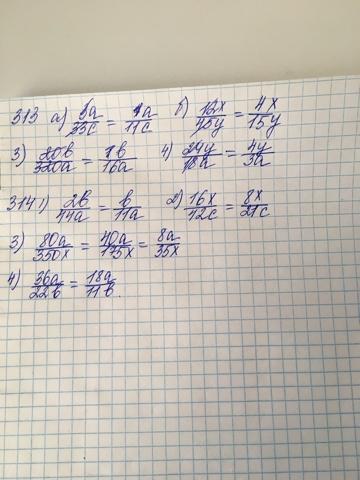 313 а) 3a/33c = 1a/11c б) 12x/45y = 4x/15y
3) 20b/320a = 1b/16a 4) 24y/18a = 4y/3a
314 1) 2b/44a = b/11a 2) 16x/42c = 8x/21c
3) 80a/350x = 40a/175x = 8a/35x
4) 36a/22b = 18a/11b.